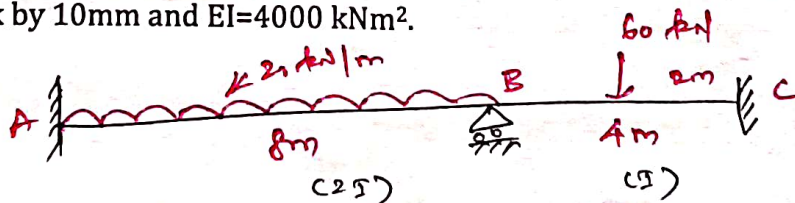 by 10mm and EI=4000 kNm².
60 kN
20 kN/m
B
2m
C
A
8m
4m
(2I)
(I)